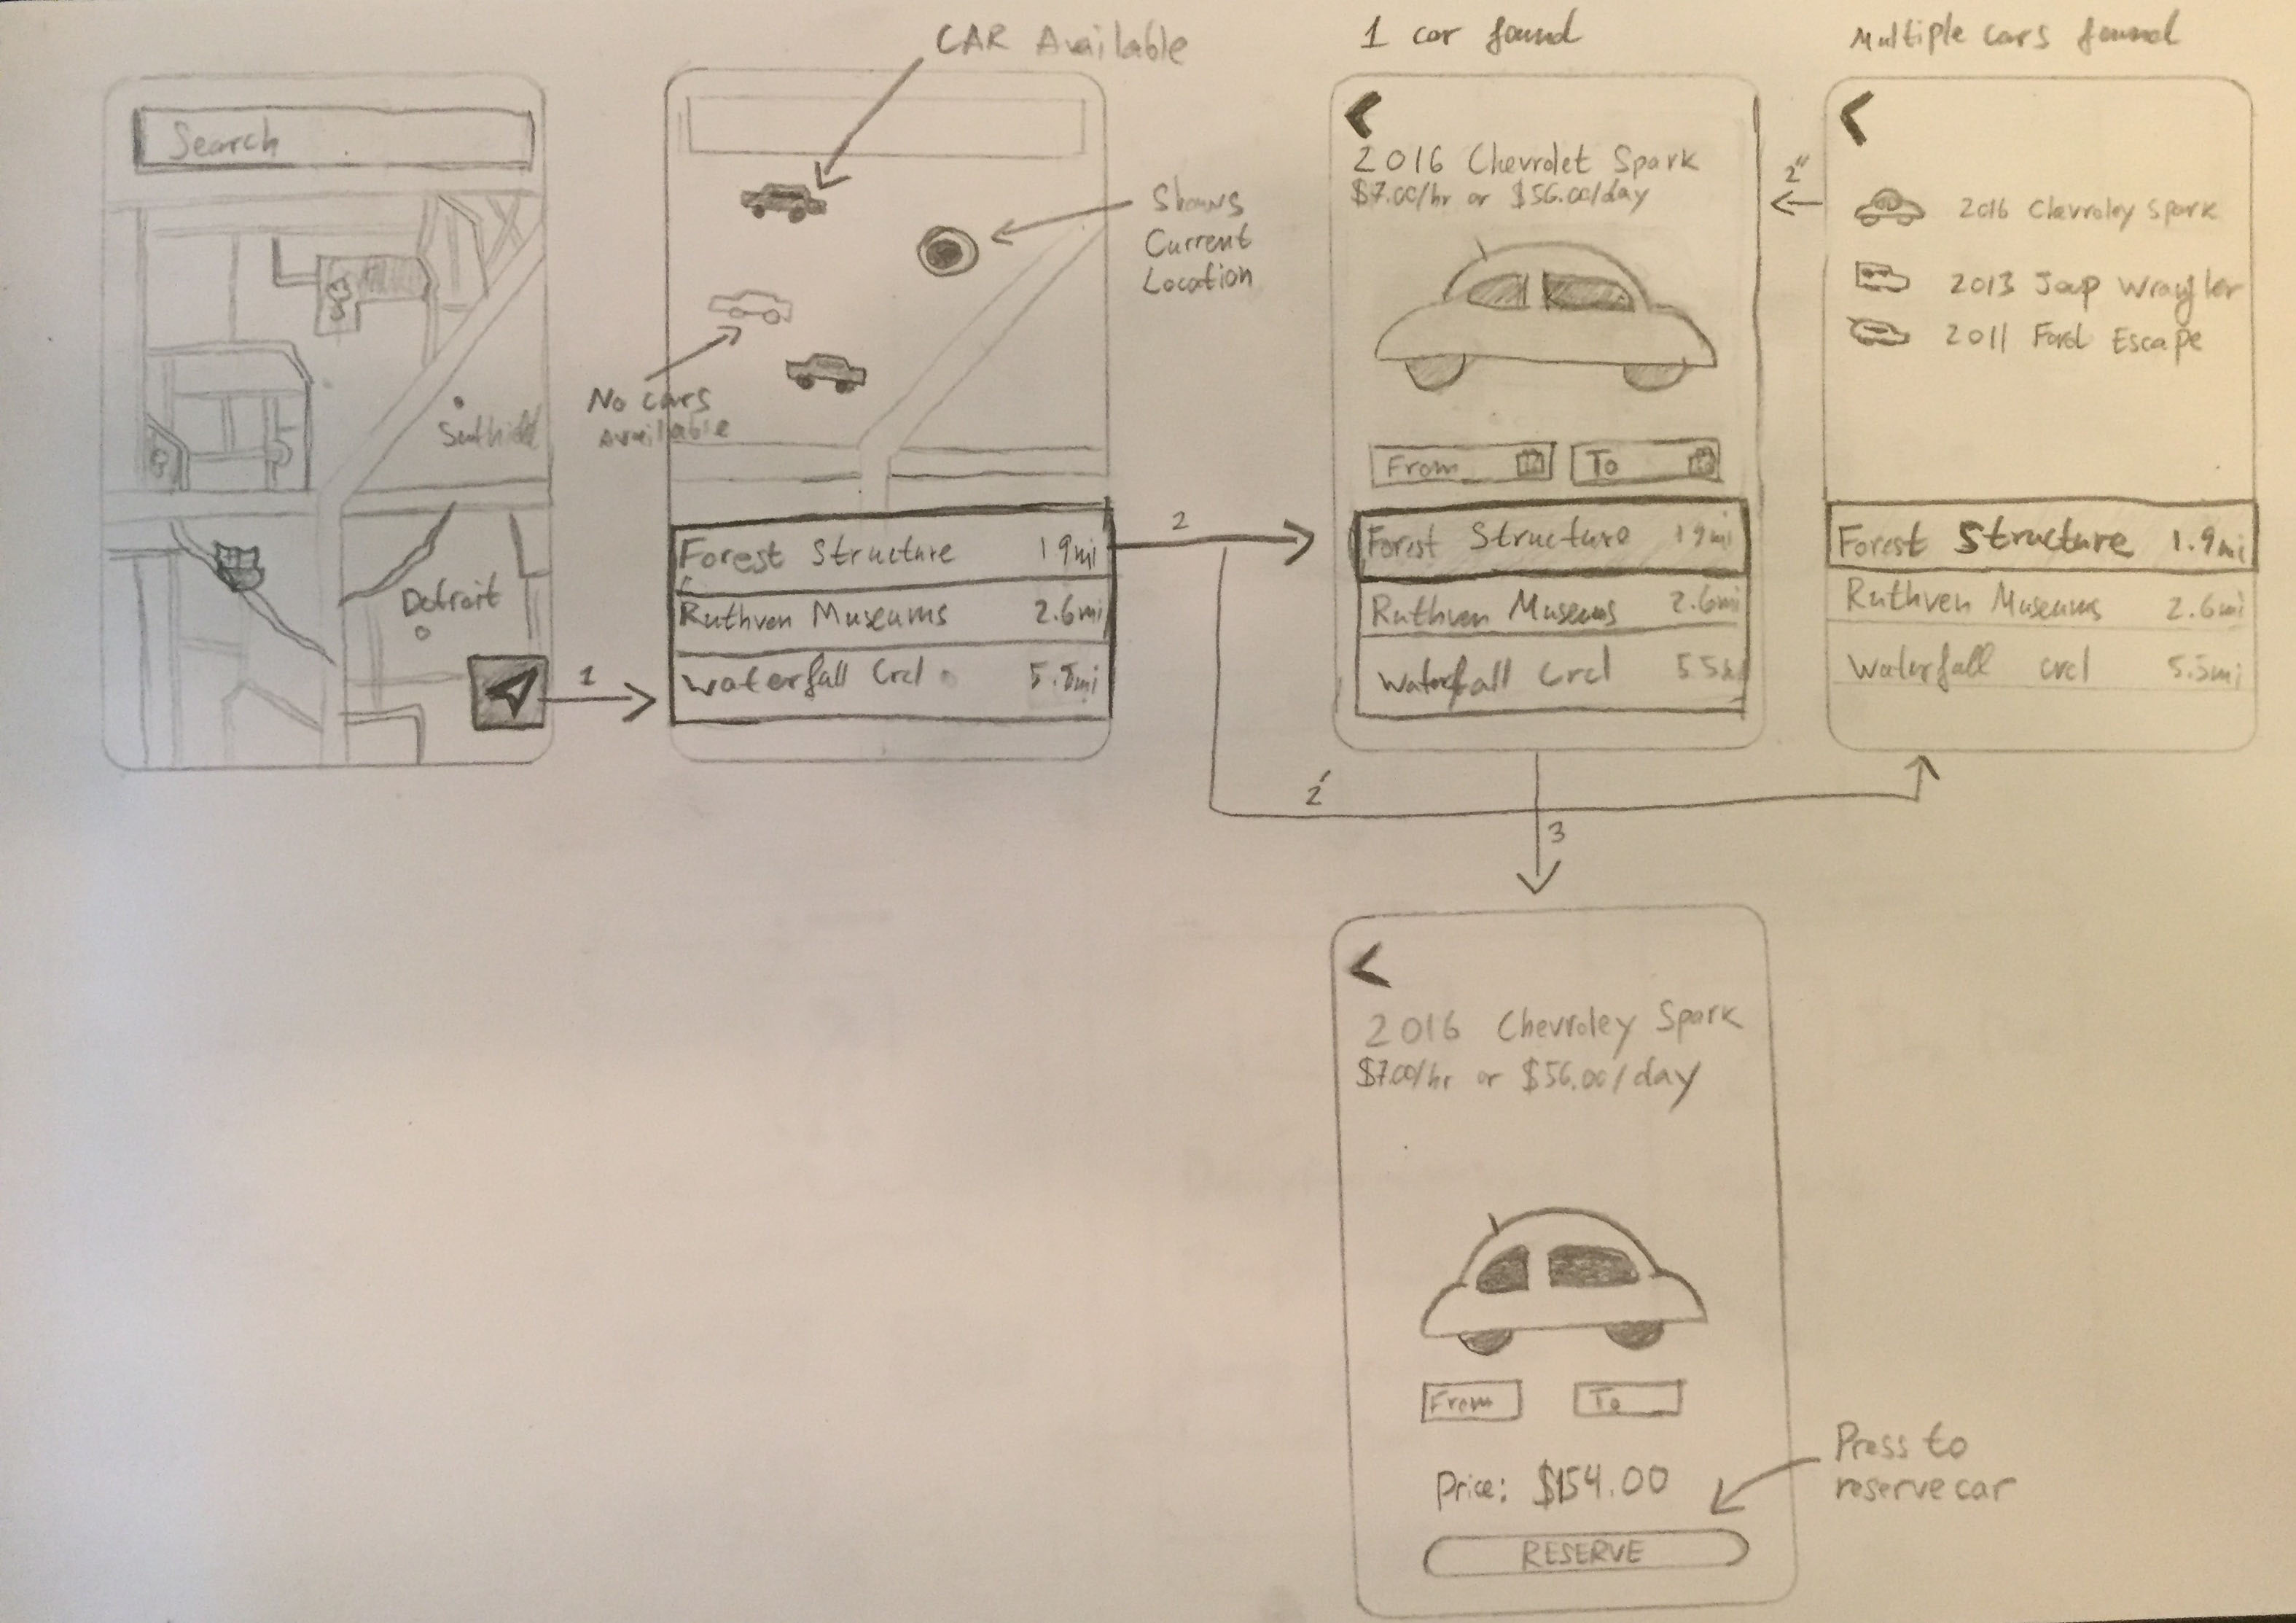 CAR Available
1 car found
Multiple cars found
Search
Detroit
1
Shows
Current
Location
No cars
Available
Forest Structure 1 9mi
Ruthven Museums 2.6mi
Waterfall Crcl
2
2016 Chevrolet Spark
$7.00/hr or $56.00/day
From
To
Forest Structure 1 9mi
Ruthven Museums 2.6mi
Waterfall Crcl
2"
2016 Chevroley Spark
2013 Jeep Wrangler
2011 Ford Escape
Forest Structure 1.9mi
Ruthven Museums 2.6mi
Waterfall crcl 5.5mi
2'
3
2016 Chevroley Spark
$7.00/hr or $56.00/day
From
To
Price: $154.00
RESERVE
Press to
reserve car